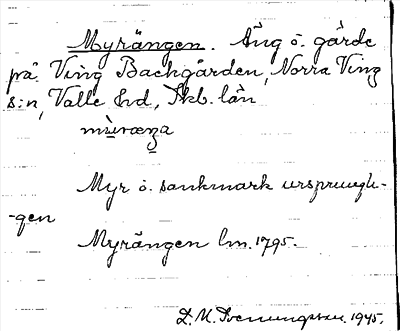 Myrängen. Äng o. gärde
på Ving Backgården, Norra Ving
s:n, Valle hd, Skb. län
Myr o. sankmark ursprungli-
-gen
Myrängen lm. 1795.
1945.